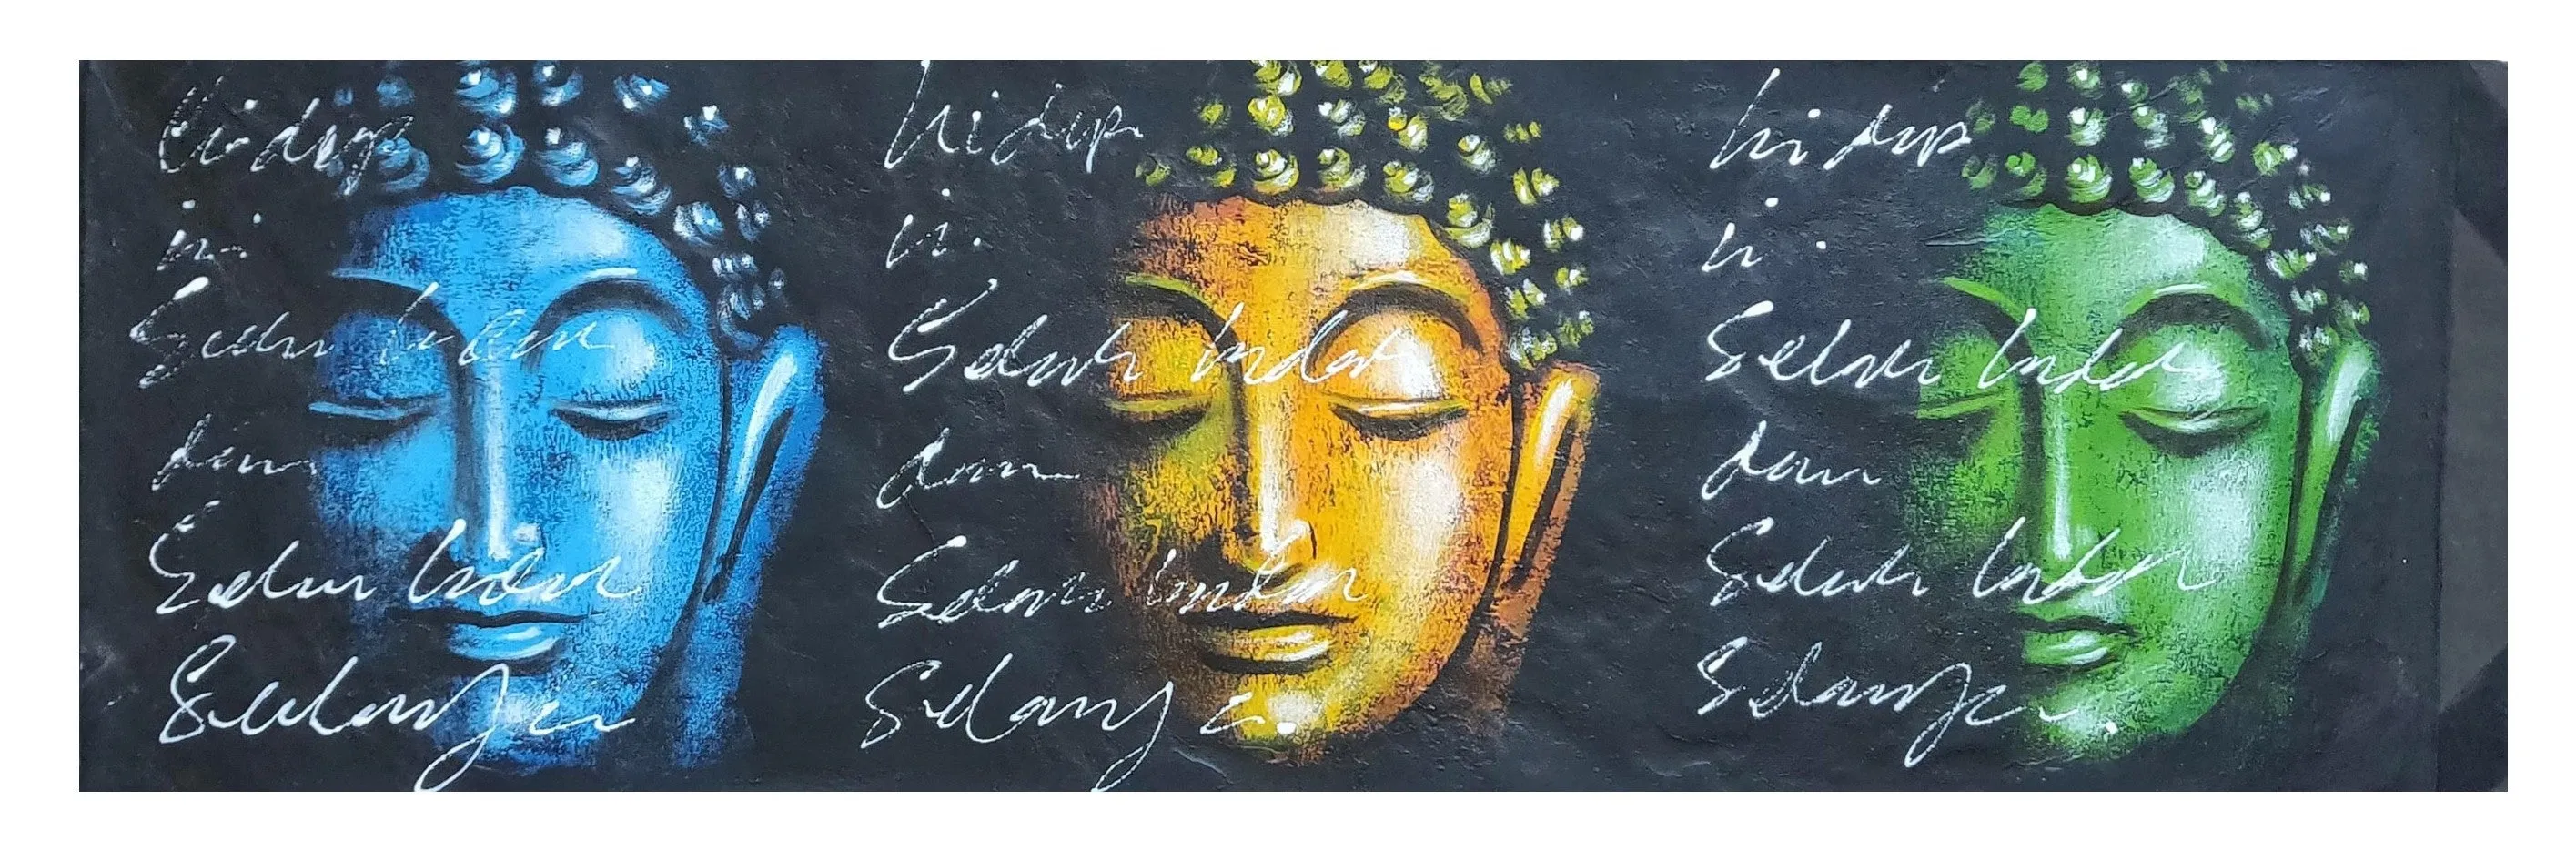 hidup
ini
Selalu indah
dan
Selalu indah
Selamanya
hidup
ini
Selalu indah
dan
Selalu indah
Selamanya
hidup
ini
Selalu indah
dan
Selalu indah
Selamanya